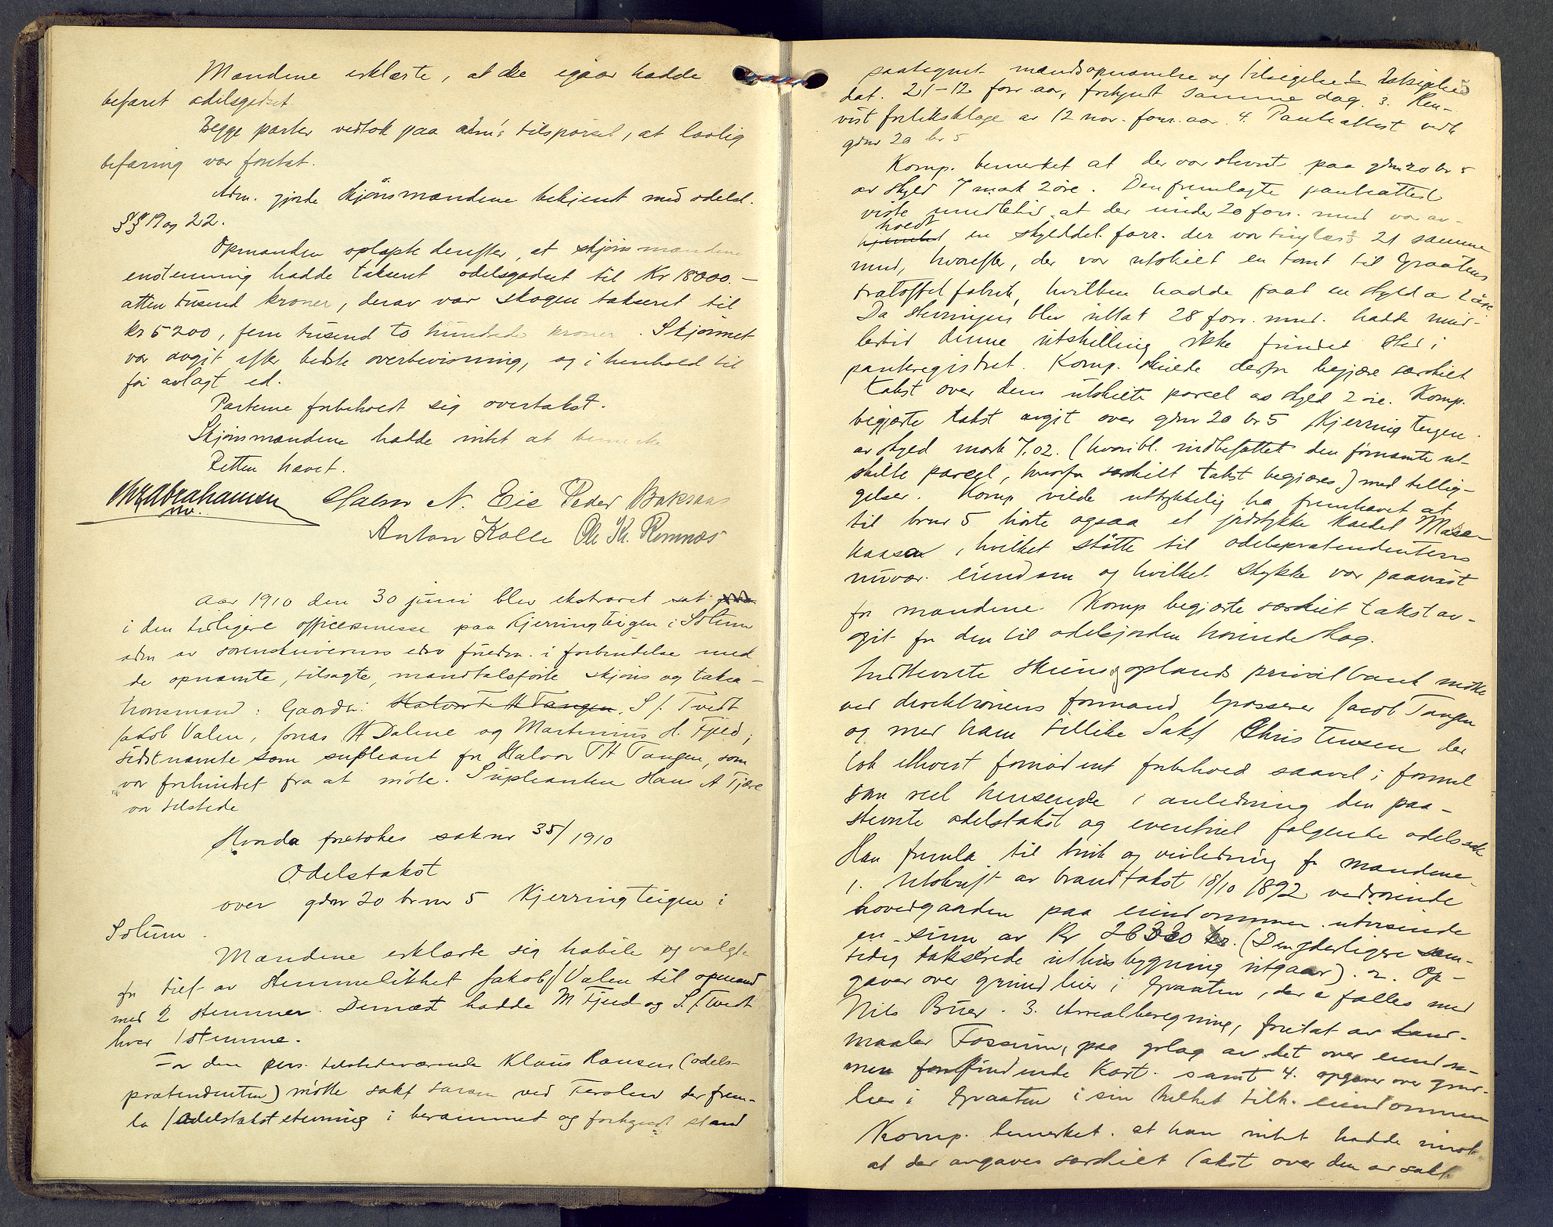 Mændene erklærte, at de igaar hadde
befaret odelsgodset
Begge parter vedtok paa adm's tilspørsel, at lovlig
befaring var foretat.
Adm. gjorde skjønsmændene bekjent med odelsl.
§§ 19 og 22.
Opmanden oplæste derefter, at skjønsmændene
enstemmig hadde taksert odelsgodset til Kr 18000.-
atten tusend kroner, derav var skogen taksert til
kr 5200, fem tusend to hundrede kroner. Skjønnet
var avgit efter bedste overbevisning, og i henhold til
før avlagt ed.
Parterne forbeholdt sig overtakst.
Skjønsmændene hadde intet at bemerke
Retten hævet.
Chr Abrahamsen Halvor N. Eie Peder Baksaas
Anton Kolle Ole Kr. Romnæs
Aar 1910 den 30 juni blev ekstraret sat
i den tidligere officersmesse paa Kjerringteigen i Solum
adm av sorenskriverens edsv fuldm. i forbindelse med
de opnævnte, tilsagte, mandtalsførte skjøns og taksa-
tionsmænd: Gaardbr: Halvor T H Tangen. S. J. Tvedt
Jakob Valen, Jonas H Dalene og Martinius H. Fjeld;
sidstnævnte som supleant for Halvor TH Tangen, som
var forhindret fra at møte. Supleanten Hans A Tjære
var tilstede
Hvorda foretokes sak nr 35/1910
Odelstakst
over gdnr 20 brnr 5 Kjerringteigen i
Solum.
Mændene erklærte sig habile og valgte
for tief av Hemmelikhet Jakob Valen til opmand
med 2 stemmer. Dernæst hadde M Fjeld og S. J. Tvedt
hver 1 stemme.
For den pers. tilstedeværende Klaus Hansen (odels-
prætendenten) møtte sakf ved der frem-
la 1 odelstakststevning i berammet og forkyndt stand
paategnet mandsopnævnelse og tilsigelse
dat. 21-12 forr. aar, forkynt samme dag. 3. Gen-
vist forliksklage av 12 nov. forr. aar. 4. Panteattest vedk
gdnr 20 br 5
Komp. bemerket at der var stevnt paa gdnr 20 br 5
av skyld 7 mark 2 øre. Den fremlagte panteattest
viste imidlertid at der under 20 forr. mnd var av-
holdt en skylddel. forr. der var tinglæst 21 samme
mnd, hvorefter, der var utskilt en tomt til Graatens
fabrik, hvilken hadde faat en skyld av 2 øre
Da stevningen blev uttat 28 forr. mnd. hadde imid-
lertid denne utskilling ikke fundet sted i
panteregistret. Komp. skulde derfor begjære særskilt
takst over den utskilte parcel av skyld 2 øre. Komp.
begjærte takst avgit over gdnr 20 br 5 Kjerringteigen
av skyld mark 7.02. (hvoribl. indbefattet den førnævnte ut-
skilte parcel, hvorfor særskilt takst begjæres) med tillig-
gelser. Komp vilde uttrykkelig ha fremhævet at
til brnr 5 hørte ogsaa et jordstykke kaldet
hvilket støtte til odelsprætendentens
nuvær. eiendom og hvilket stykke var paavist
for mændene Komp begjærte særskilt takst av-
git for den til odelsjorden hørende skog.
Indstevnte Skiens og oplands privatbank møtte
ved direktionens formand Grosserer Jacob Tangen
og med ham tillike Sakf Christensen der
tok ethvert fornødent forbehold saavel i formel
som reel henseende i anledning den paa-
stevnte odelstakst og eventuel følgende odelssak
Han fremla til bruk og veiledning for mændene
1. Utskrift av brandtakst 18/10 1892 vedrørende
hovedgaarden paa eiendommen utvisende
en sum av Kr 26330 kr. (Den yderligere sam-
tidig takserede uthusbygning utgaar). 2. Op-
gaver over grundleier i Graaten, der er fælles med
Nils Buer. 3. Arealberegning, foretat av land-
maaler Fossum, paa grlag av det over eiendom-
men forefindende kart. samt 4. opgaver over grund-
leier i Graaten i sin helhet tilh. eiendommen
Komp. bemerket. at han intet hadde imot
at der avgaves særskilt takst over den av sakf